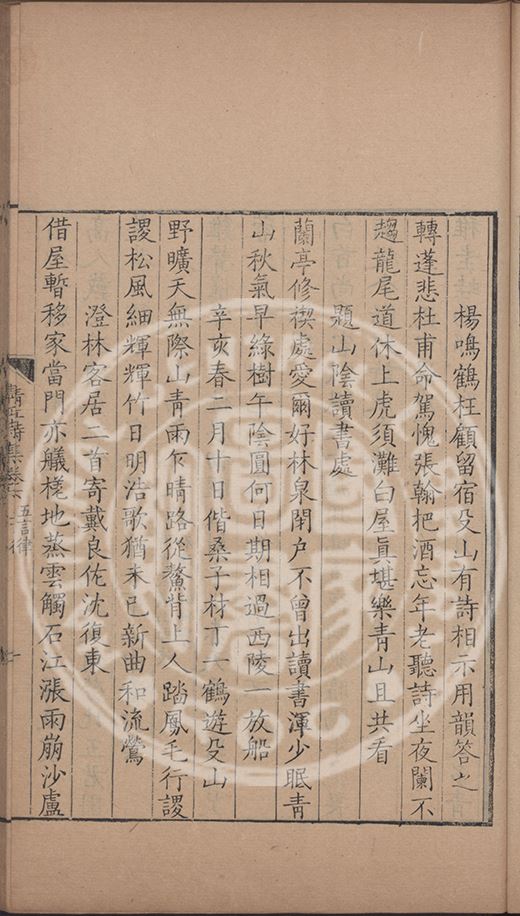 楊鳴鶴枉顧留宿殳山有詩相示用韻答之
轉蓬悲杜甫命駕愧張翰把酒忘年老聽詩坐夜闌不
趨龍尾道休上虎須灘白屋真堪樂青山且共看
題山陰讀書處
蘭亭修禊處愛爾好林泉閉户不曾出讀書渾少眠青
山秋氣早綠樹午陰圓何日期相過西陵一放船
辛亥春二月十日偕桑子材丁一鶴遊殳山
野曠天無際山青雨乍晴路從鰲背上人踏鳳毛行謖
謖松風細輝輝竹日明浩歌猶未已新曲和流鶯
澄林客居二首寄戴良佐沈復東
借屋暫移家當門亦艤槎地蒸雲觸石江漲雨崩沙盧
清江詩集卷六 五言律